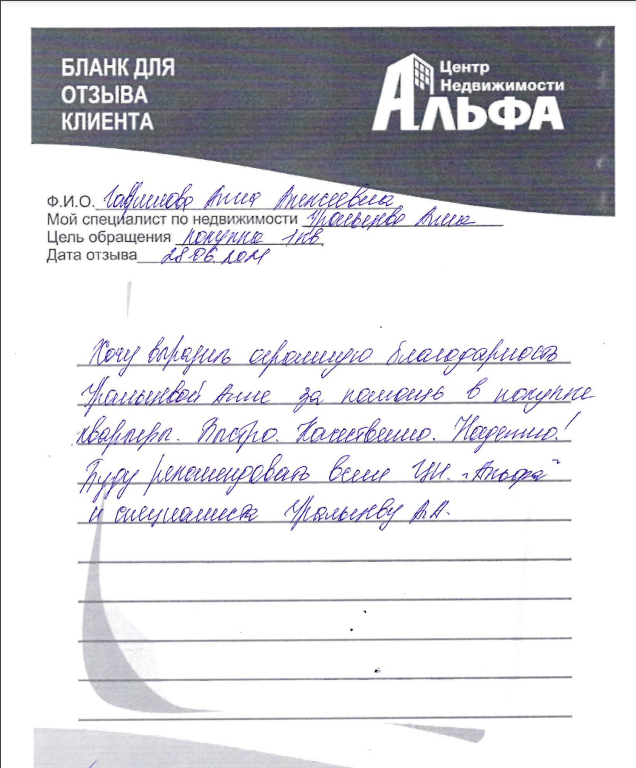 БЛАНК ДЛЯ
ОТЗЫВА
КЛИЕНТА
Центр
Недвижимости
АЛЬФА
Ф.И.О. Анна Алексеевна
Мой специалист по недвижимости Уральцева Алла
Цель обращения покупка 1 кв
Дата отзыва 28.06.2021
Хочу выразить огромную благодарность
Уральцевой Алле за помощь в покупке
квартиры. Быстро. Качественно. Надежно!
Буду рекомендовать всем ЦН. „Альфа"
и специалиста Уральцеву А.А.